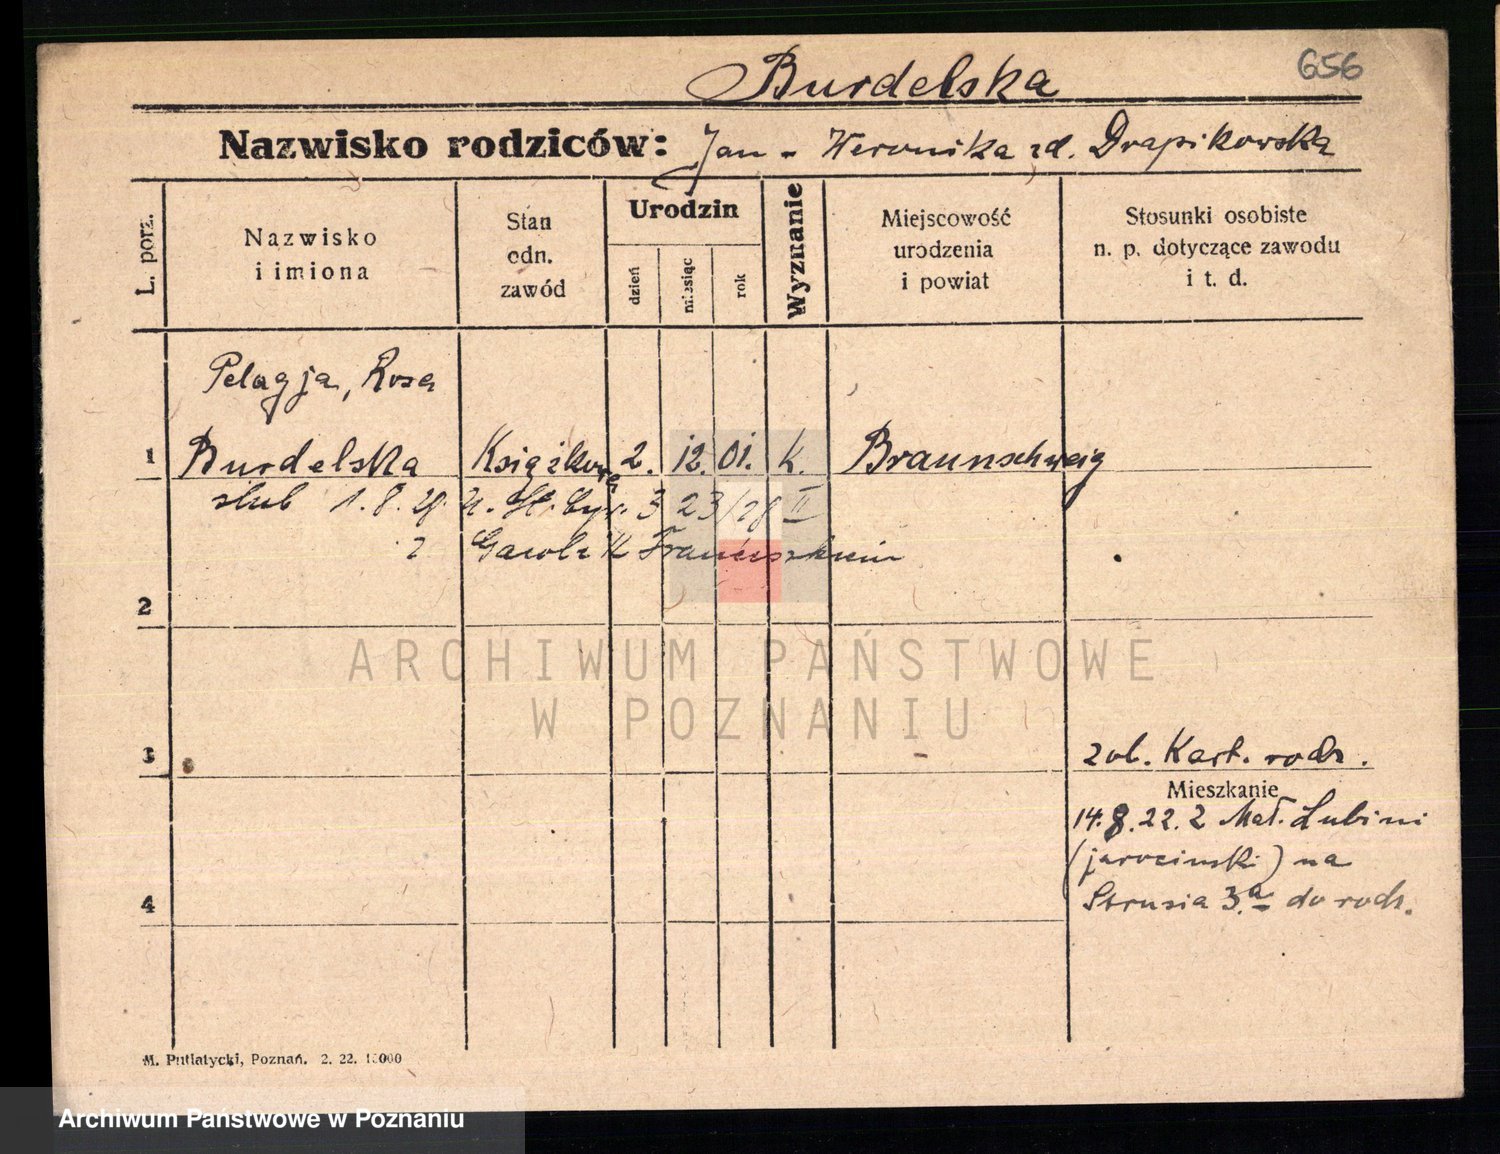 656
Burdelska
Nazwisko rodziców: Jan - Weronika zd. Drapikowska
L. porz.
Nazwisko
i imiona
Stan
odn.
zawód
Urodzin
dzień
miesiąc
rok
Wyznanie
Miejscowość
urodzenia
i powiat
Stosunki osobiste
n. p. dotyczące zawodu
i t. d.
Pelagja, Rosa
1 Burdelska Książkowa 2. 12. 01. k. Braunschweig
ślub 1. 8. 28. 3 23/28 II
z Franciszkiem
2
ARCHIWUM PAŃSTWOWE
W POZNANIU
3
zob. Kart. rodz.
Mieszkanie
14.8.22. z Mał. Lubini
(jarocinski) na
4
Strusia 3.a do rodz.
M. Putiatycki, Poznań. 2. 22.
Archiwum Państwowe w Poznaniu